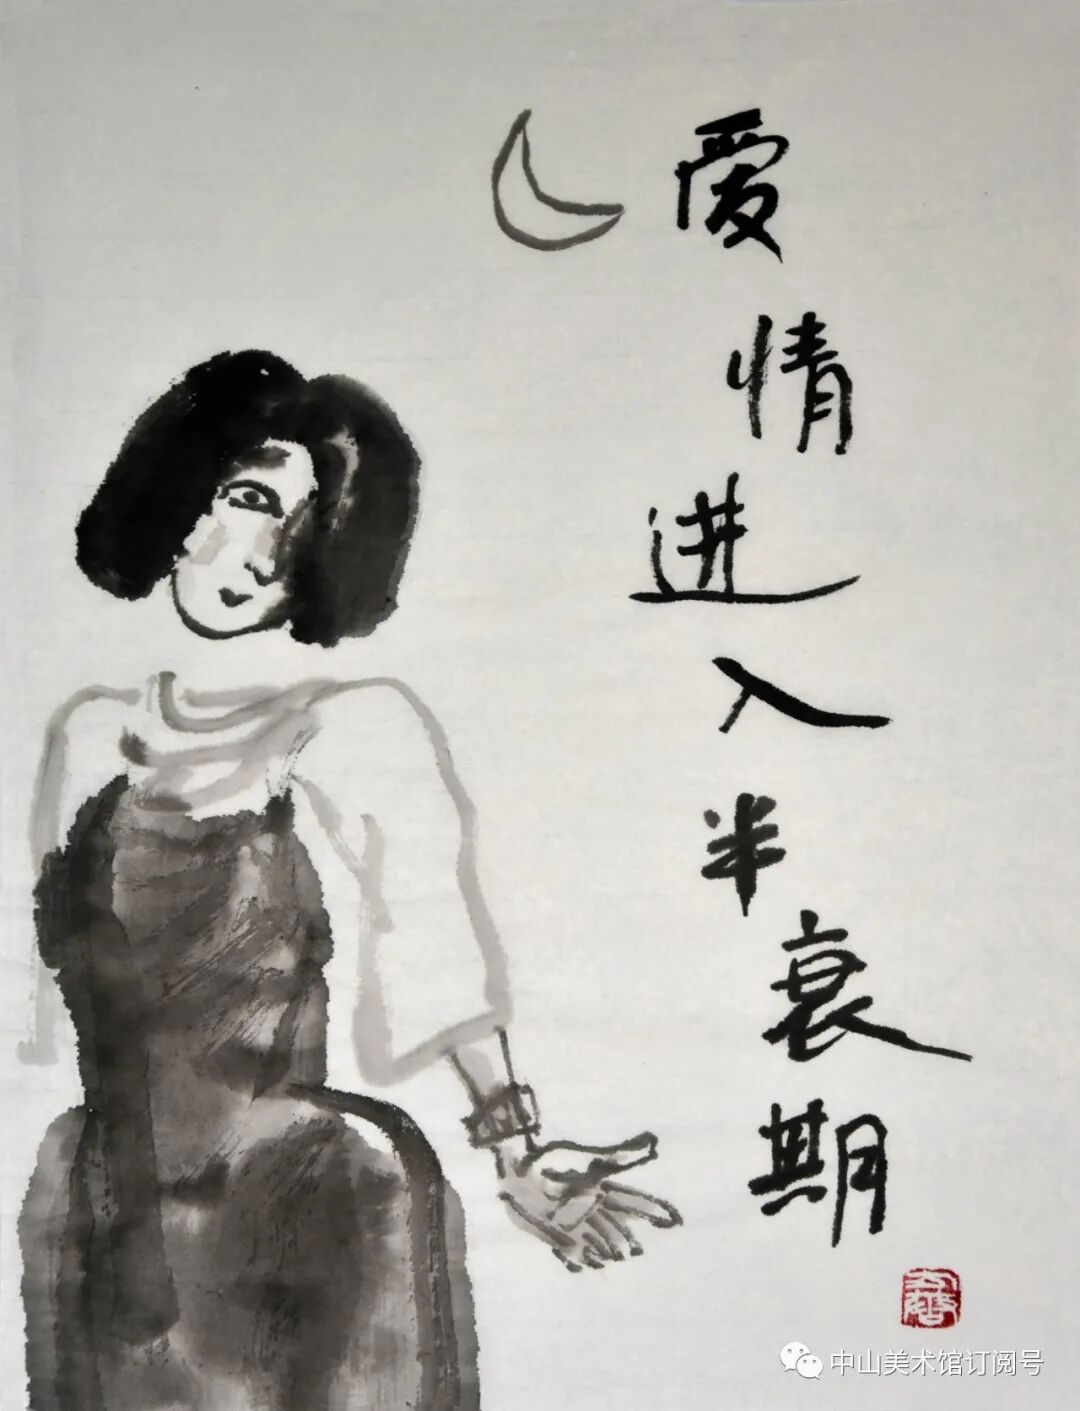 爱情进入半衰期
中山美术馆订阅号